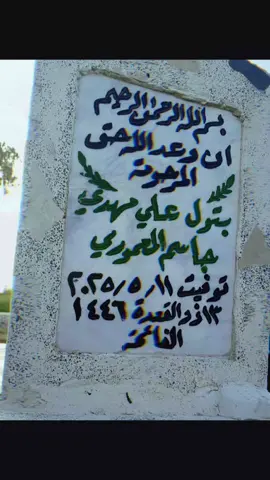 بسم الله الرحمن الرحيم
ان وعد الله حق
المرحومة
بتول علي مهدي
جاسم العموري
توفيت ٢٠٢٥/٥/١١
١٣ ذو القعدة ١٤٤٦
الفاتحة